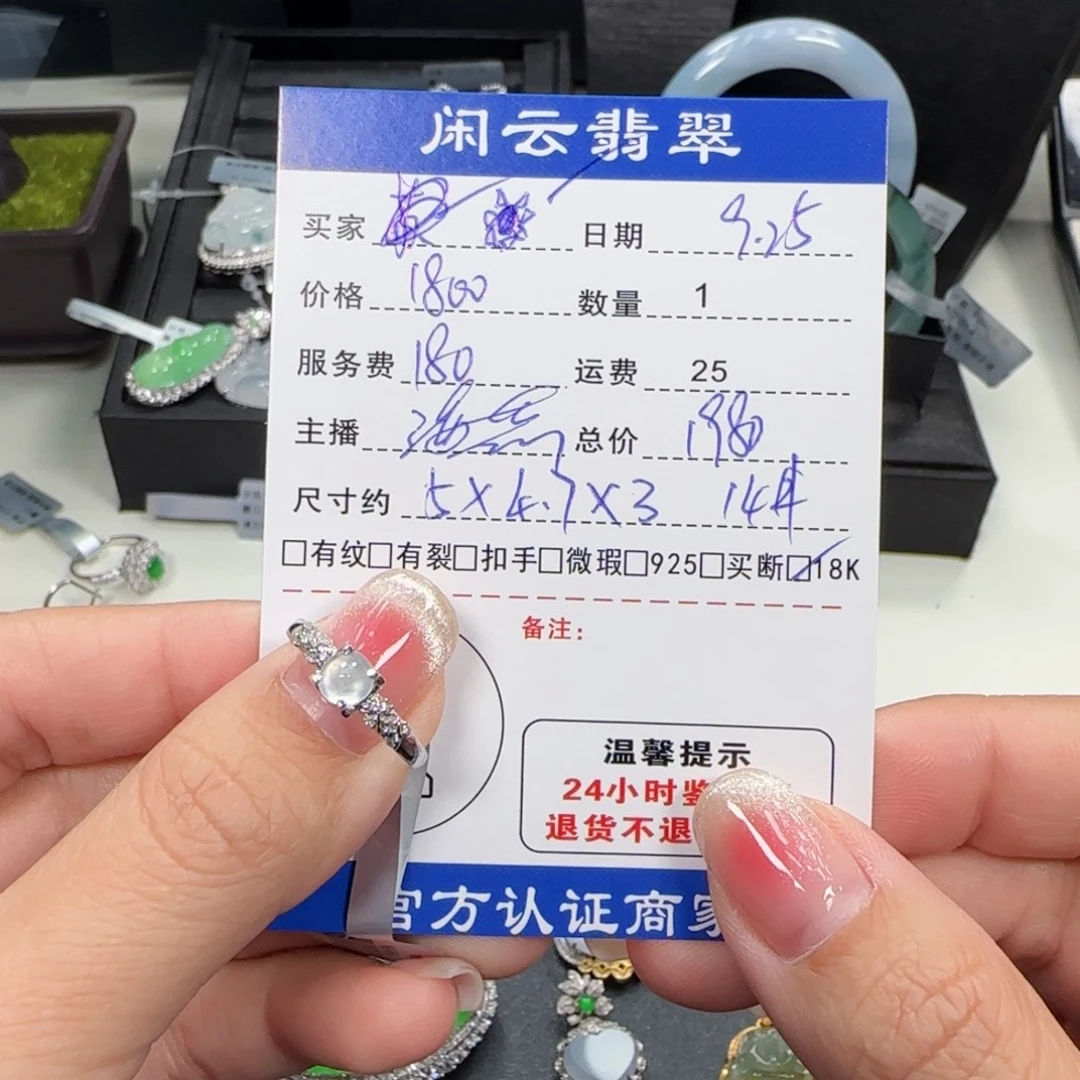 闲云翡翠
买家 日期 9.25
价格 1800 数量 1
服务费 180 运费 25
主播 总价 1980
尺寸约 5×4.7×3 14#
□有纹□有裂□扣手□微瑕□925□买断☑18K
备注：
温馨提示
24小时鉴
退货不退
官方认证商家